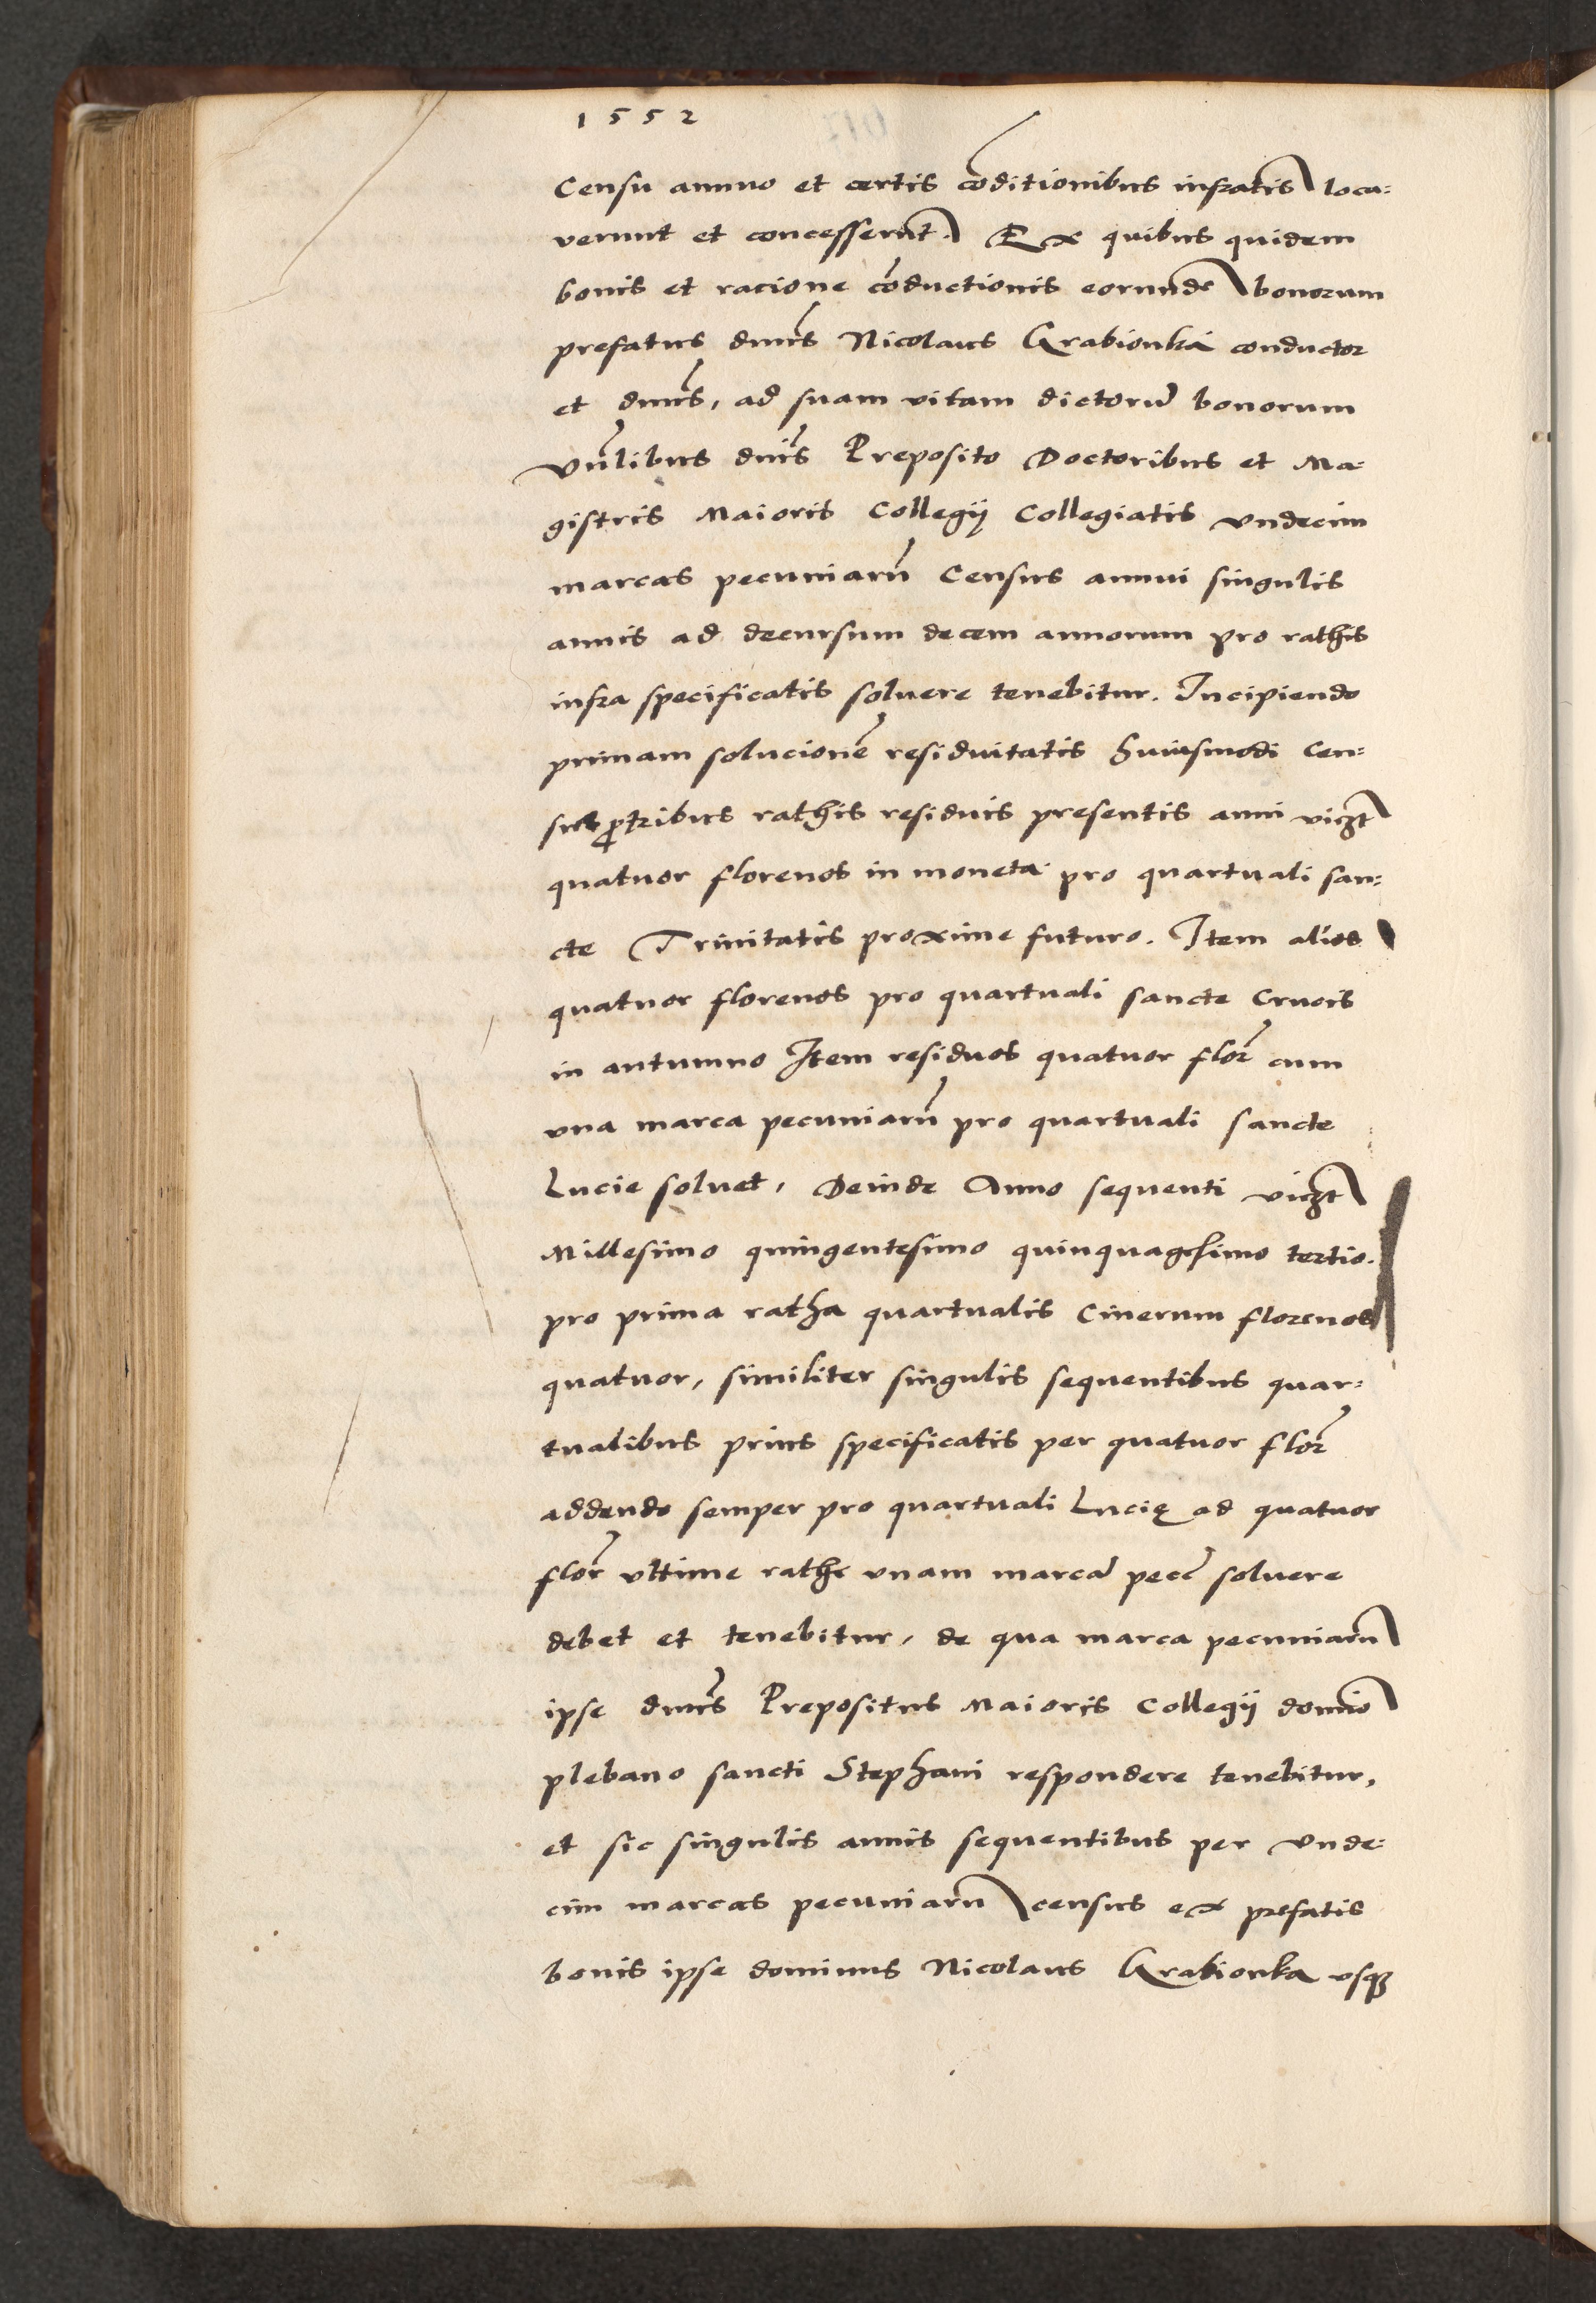 1552
Censu annuo et certis cōditionibus infratis loca-
verunt et concesserūt. Ex quibus quidem
bonis et racione cōductionis eorundē bonorum
prefatus dnus Nicolaus Grabionka conductor
et dnus, ad suam vitam dictorū bonorum
Vnlibus dnis Preposito Doctoribus et Ma-
gistris Maioris Collegij Collegiatis vndecim
marcas pecuniarū Census annui singulis
annis ad decursum decem annorum pro rathis
infra specificatis soluere tenebitur. Incipiendo
primam solucionē residuitatis huiusmodi Cen-
sus ꝓ tribus rathis residuis presentis anni viczt
quatuor florenos in moneta pro quartuali san-
cte Trinitatis proxime futuro. Item alios
quatuor florenos pro quartuali sancte Crucis
in autumno Item residuos quatuor flor cum
vna marca pecuniarū pro quartuali sancte
Lucie soluet, Deinde Anno sequenti viczt
Millesimo quingentesimo quinquagesimo tertio.
pro prima ratha quartualis Cinerum florenos
quatuor, similiter singulis sequentibus quar-
tualibus prius specificatis per quatuor flor
addendo semper pro quartuali Lucię ad quatuor
flor vltime rathe vnam marcā pecc soluere
debet et tenebitur, de qua marca pecuniarū
ipse dnus Prepositus Maioris Collegij domino
plebano sancti Stephani respondere tenebitur,
et sic singulis annis sequentibus per vnde-
cim marcas pecuniarū census ex prefatis
bonis ipse dominus Nicolaus Grabionka vsqꝫ